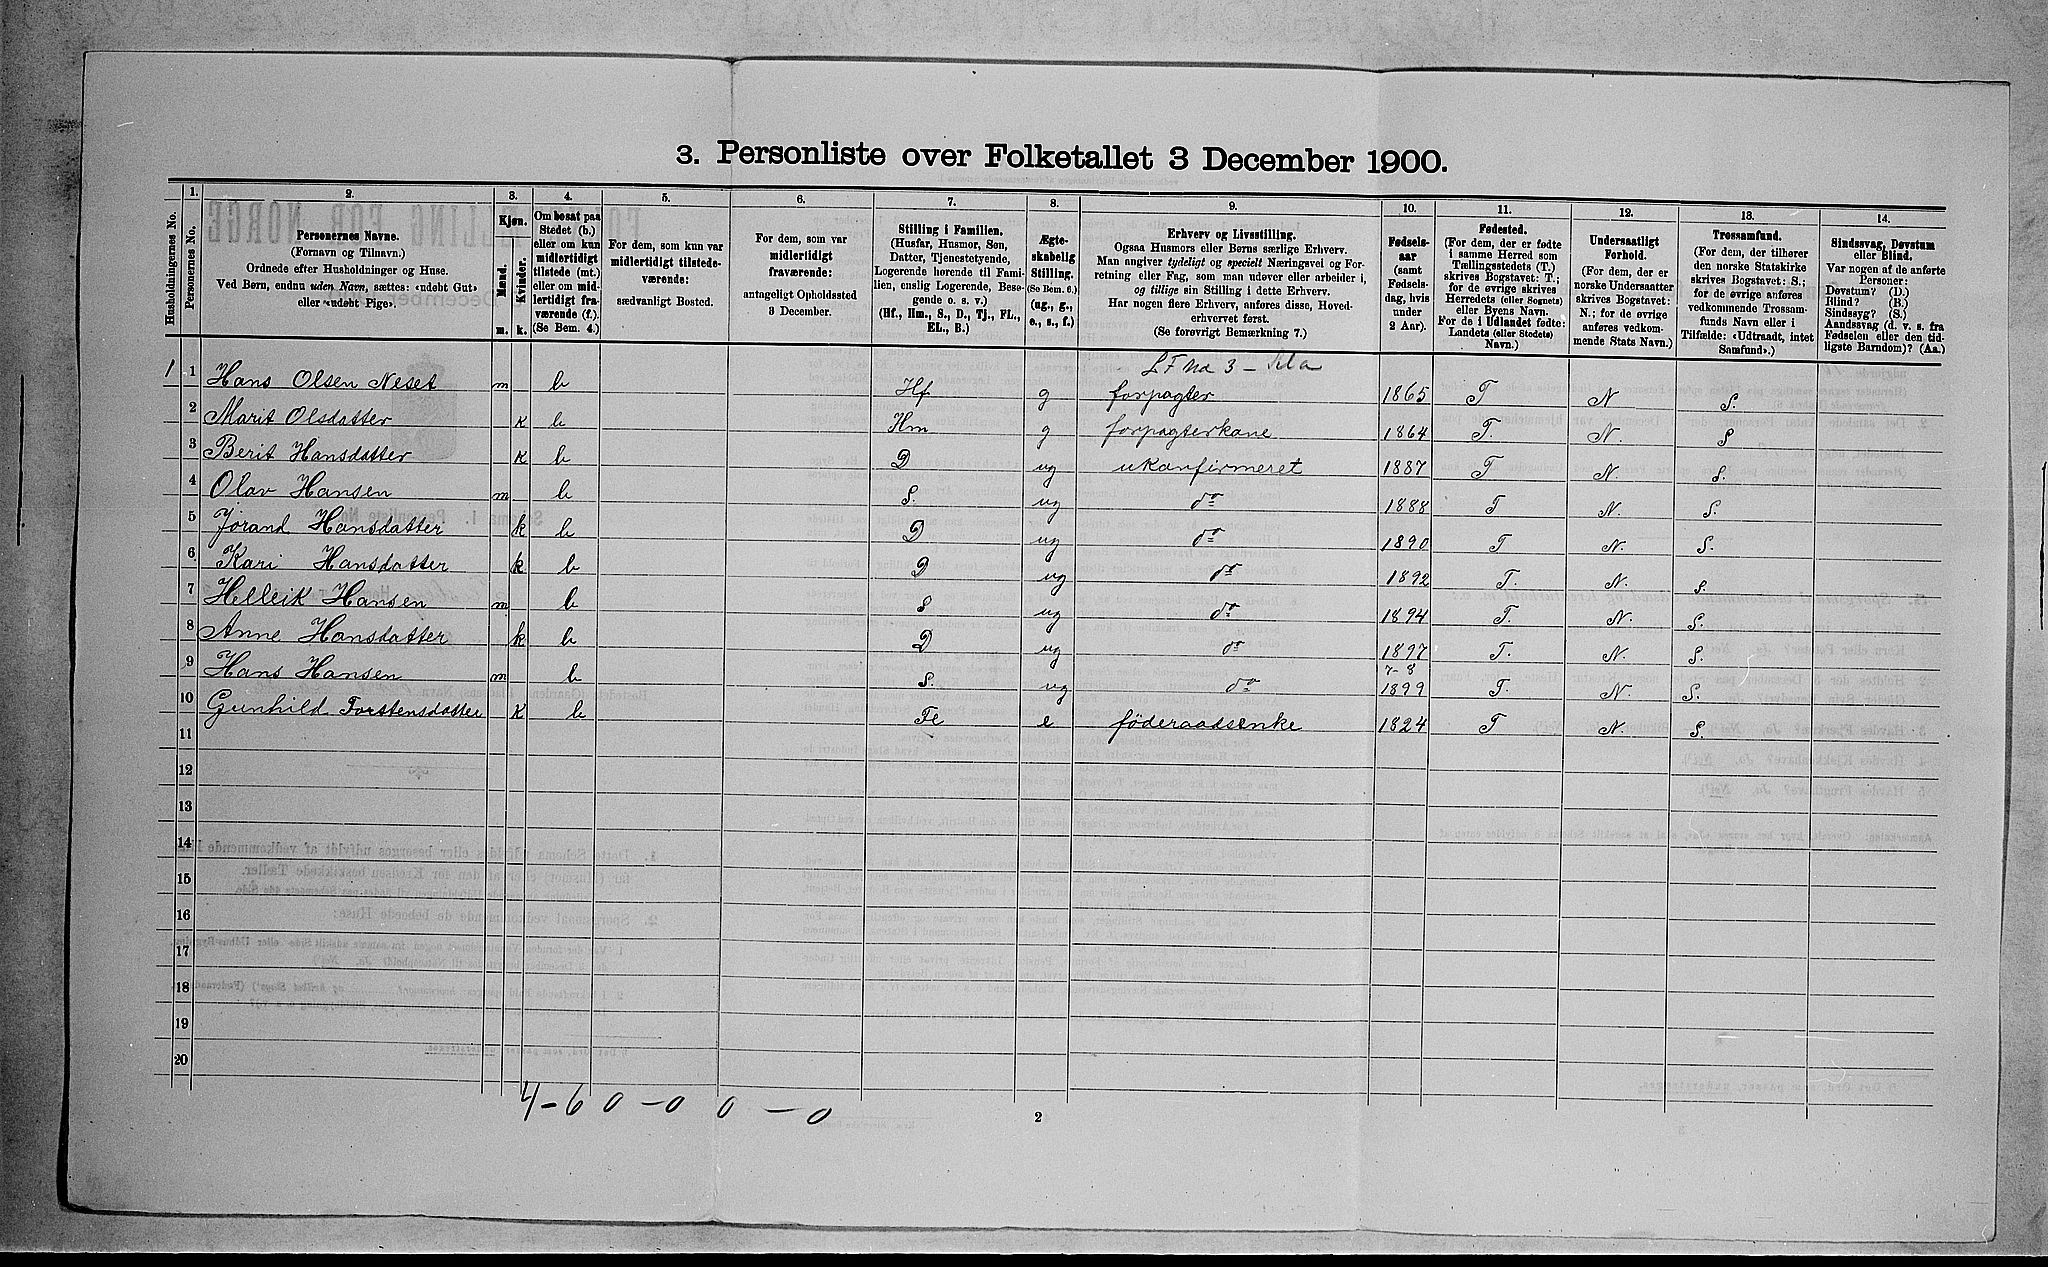 3. Personliste over Folketallet 3 December 1900.
Husholdningernes No.
1. Personernes No.
2. Personernes Navne.
(Fornavn og Tilnavn.)
Ordnede efter Husholdninger og Huse.
Ved Børn, endnu uden Navn, sættes: «udøbt Gut»
eller «udøbt Pige».
3. Kjøn.
Mænd. m.
Kvinder. k.
4.
Om bosat paa
Stedet (b.)
eller om kun
midlertidigt
tilstede (mt.)
eller om mid-
lertidigt fra-
værende (f.).
(Se Bem. 4.)
5.
For dem, som kun var
midlertidigt tilstede-
værende:
sædvanligt Bosted.
6.
For dem, som var
midlertidigt
fraværende:
antageligt Opholdssted
3 December.
7.
Stilling i Familien.
(Husfar, Husmor, Søn,
Datter, Tjenestetyende,
Logerende hørende til Fami-
lien, enslig Logerende, Besø-
gende o. s. v.)
(Hf., Hm., S., D., Tj., FL.,
EL., B.)
8.
Ægte-
skabelig
Stilling.
(Se Bem. 6.)
(ug., g.,
e., s., f.)
9.
Erhverv og Livsstilling.
Ogsaa Husmors eller Børns særlige Erhverv.
Man angiver tydeligt og specielt Næringsvei og For-
retning eller Fag, som man udøver eller arbeider i,
og tillige sin Stilling i dette Erhverv.
Har nogen flere Erhverv, anføres disse, Hoved-
erhvervet først.
(Se forøvrigt Bemærkning 7.)
10.
Fødsels-
aar
(samt
Fødsels-
dag, hvis
under
2 Aar).
11.
Fødested.
(For dem, der er fødte
i samme Herred som
Tællingsstedets (T.)
skrives Bogstavet: T.;
for de øvrige skrives
Herredets (eller Sognets)
eller Byens Navn.
For de i Udlandet fødte:
Landets (eller Stedets)
Navn.)
12.
Undersaatligt
Forhold.
(For dem, der er
norske Undersaatter
skrives Bogstavet:
N.; for de øvrige
anføres vedkom-
mende Stats Navn.)
13.
Trossamfund.
(For dem, der tilhører
den norske Statskirke
skrives Bogstavet: S.;
for de øvrige anføres
vedkommende Trossam-
funds Navn eller i
Tilfælde: «Udtraadt, intet
Samfund».)
14.
Sindssvag, Døvstum
eller Blind.
Var nogen af de anførte
Personer:
Døvstum? (D.)
Blind? (B.)
Sindssyg? (S.)
Aandssvag (d. v. s. fra
Fødselen eller den tid-
ligste Barndom)? (Aa.)
1 1 Hans Olsen Neset m b Hf g forpagter 1865 T N S.
2 Marit Olsdatter k b Hm g forpagterkone 1864 T. N. S
3 Berit Hansdatter k b D ug ukonfirmeret 1887 T N. S.
4 Olav Hansen m b S. ug do 1888 T N. S.
5 Jorand Hansdatter k b D ug do 1890 T N. S.
6 Kari Hansdatter k b D ug do 1892 T. N. S.
7 Helleik Hansen m b S ug do 1894 T. N. S.
8 Anne Hansdatter k b D ug do 1897 T. N. S.
9 Hans Hansen m b S. ug do 7-8 1899 T. N. S.
10 Gunhild Torstensdatter k b Fl e föderaadsenke 1824 T N. S.
11
12
13
14
15
16
17
18
19
20
4-6 0-0 0-0
2